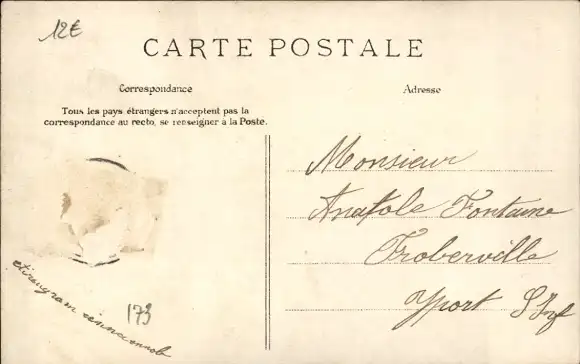 12€
CARTE POSTALE
Correspondance
Adresse
Tous les pays étrangers n'acceptent pas la
correspondance au recto, se renseigner à la Poste.
Monsieur
Anatole Fontaine
Froberville
Yport S Inf
173